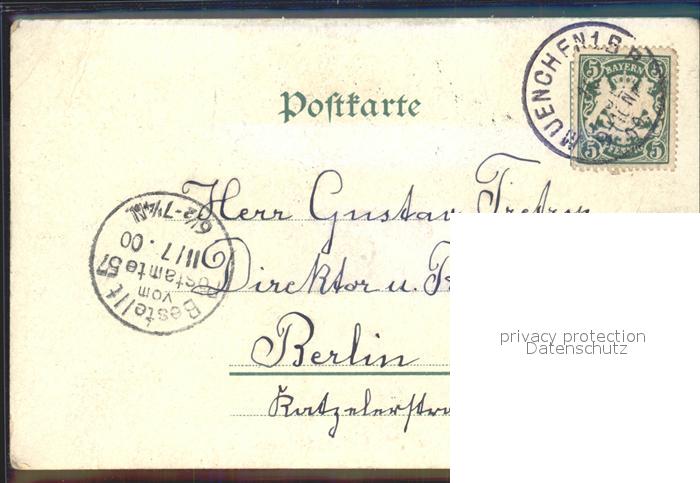 Postkarte
MUENCHEN 1. B. P.
5 BAYERN 5
5 PFENNIG 5
Herr Gustav
Direktor u.
Berlin
Katzelerstra
Bestellt
vom
Postamte 57
11/7.00
6½-7¼N.
privacy protection
Datenschutz